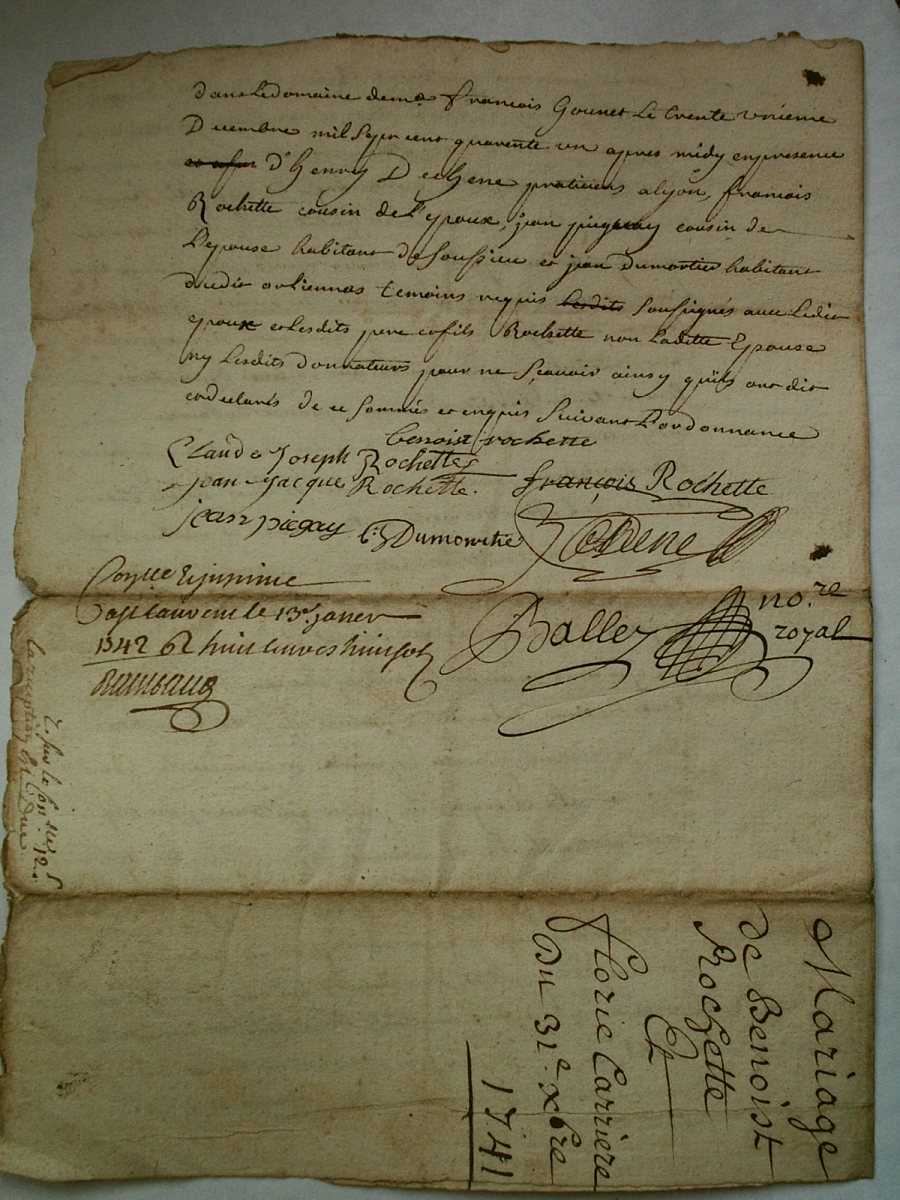 dans Le domaine de me francois Gounet Le trente unieme
Decembre mil sept cent quarente un apres midy en presence
d'henry Dechene praticiens a lyon, francois
Rochette cousin de L'epoux, jean piegay cousin de
L'epouse habitant de Soussieu et jean Dumortier habitant
dudit orliennas temoins requis lesdits soussignés avec Ledit
epoux et Lesdits pere et fils Rochette non Laditte Epouse
ny Lesdits donnateurs pour ne sçavoir ainsy qu'ils ont dit
et declarés de ce sommés et enquis suivant L'ordonnance
benoist rochette
Claude Joseph Rochette
jean Jacque Rochette. françois Rochette
jean piegay Dumortie
Balley no.re
royal
Con.lle
a st Laurent le 13e janer
1742 huit livres huit sols
Mariage
de Benoist
Rochette
Et
florie Carriere
Du 31e xbre
1741